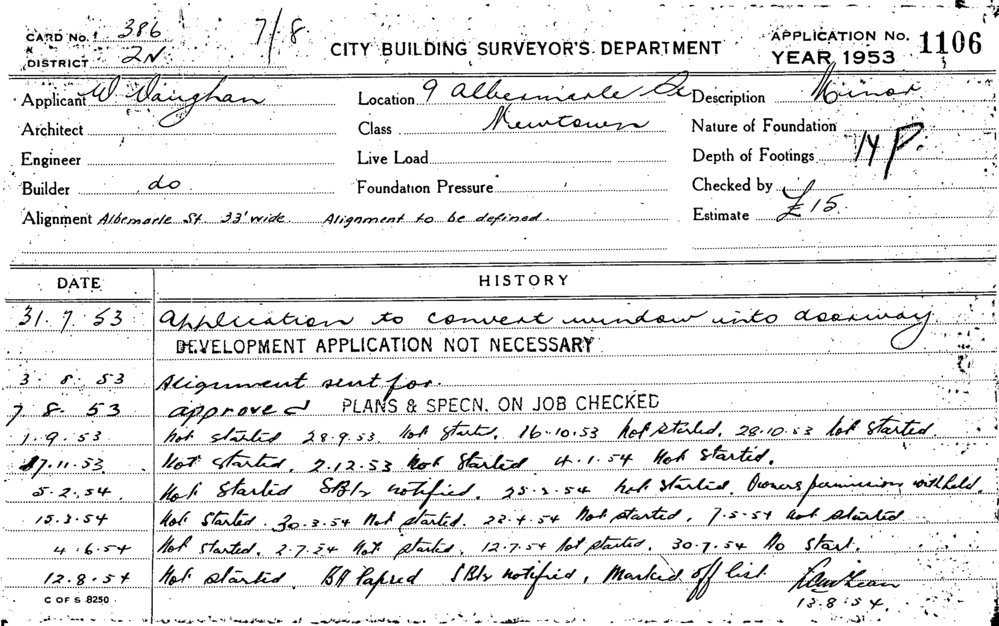 CARD No. 386
7/8
& DISTRICT 2N
CITY BUILDING SURVEYOR'S DEPARTMENT
APPLICATION No. 1106
YEAR 1953
Applicant W Vaughan Location 9 Albermarle St Description Minor
Architect Class Newtown Nature of Foundation
Engineer Live Load Depth of Footings 14 P.
Builder do Foundation Pressure Checked by
Alignment Albemarle St. 33' wide Alignment to be defined. Estimate £15.
DATE HISTORY
31.7.53 Application to convert window into doorway
DEVELOPMENT APPLICATION NOT NECESSARY
3.8.53 Alignment sent for.
7 8. 53 approved PLANS & SPECN. ON JOB CHECKED
1.9.53 Not started 28.9.53. Not started. 16.10.53 Not started. 28.10.53 Not started.
17.11.53 Not started. 2.12.53 Not started 4.1.54 Not started.
5.2.54. Not started notified. 25.2.54 Not started. Owners permission withheld.
15.3.54 Not started. 30.3.54 Not started. 22.4.54 Not started. 7.5.54 Not started
4.6.54 Not started. 2.7.54 Not started. 12.7.54 Not started. 30.7.54 No start.
12.8.54 Not started. BA lapsed notified, Marked off list
C OF S 8250
13.8.54.